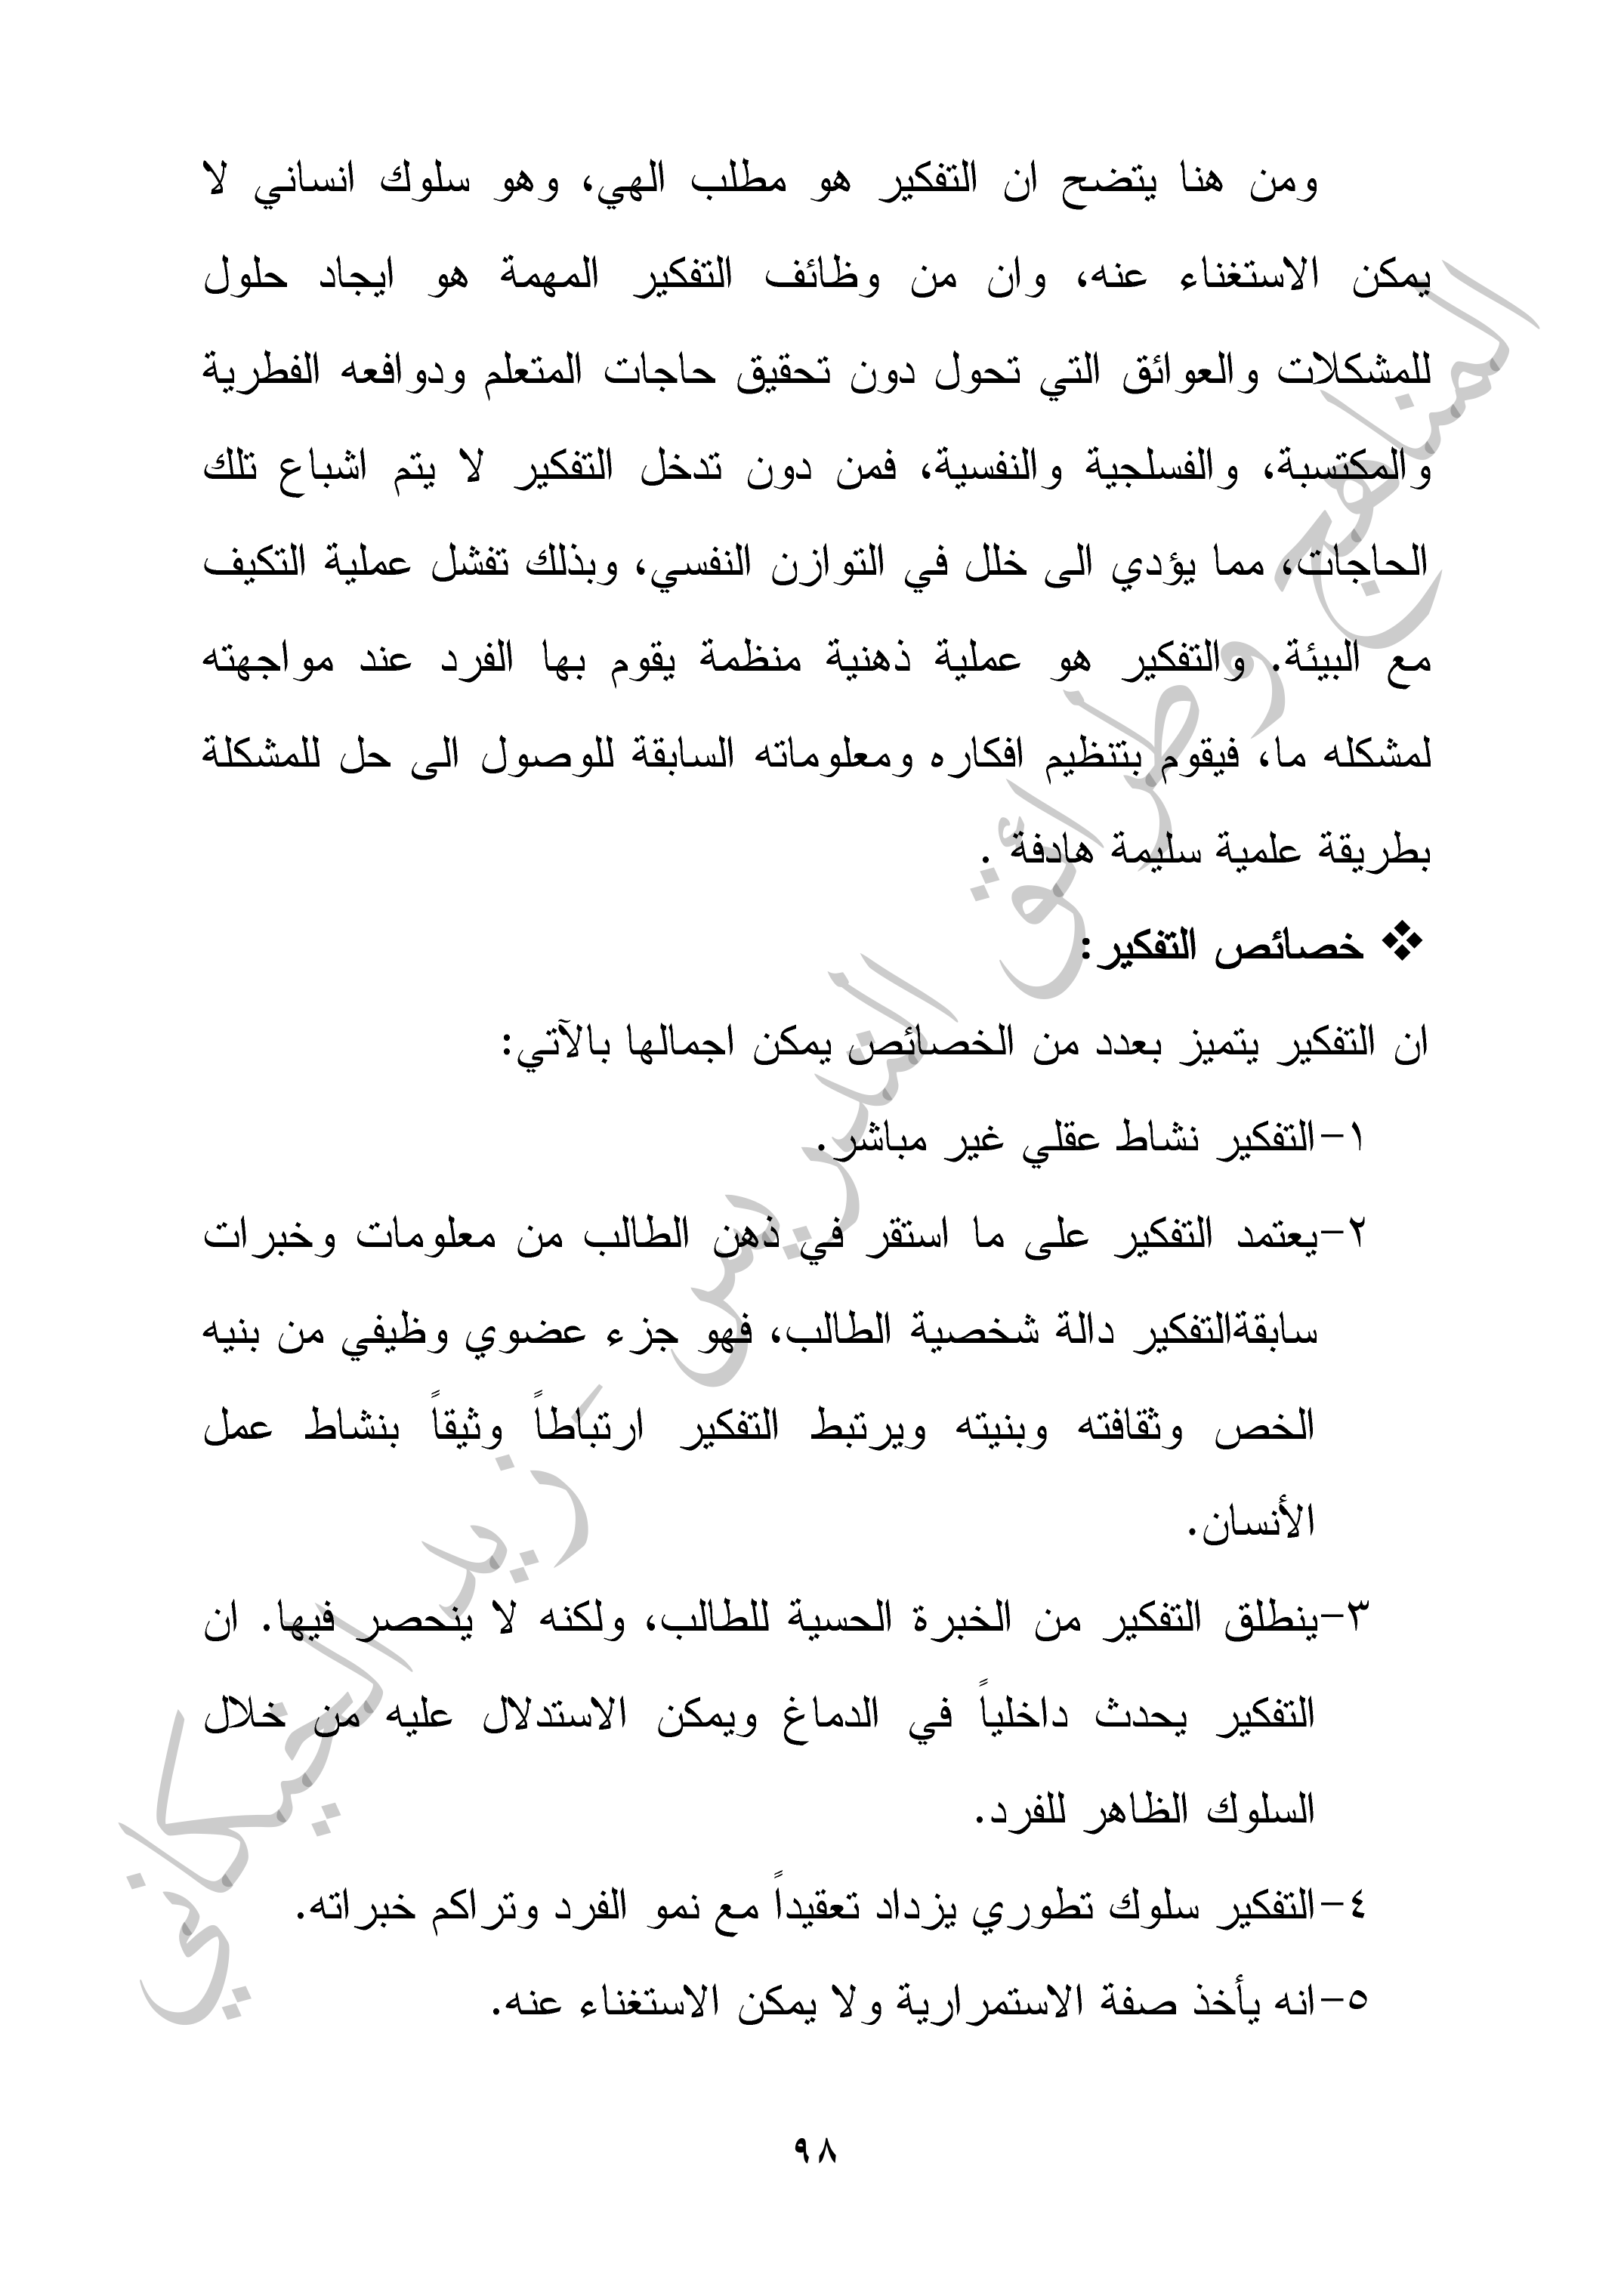 ومن هنا يتضح ان التفكير هو مطلب الهي، وهو سلوك انساني لا
يمكن الاستغناء عنه، وان من وظائف التفكير المهمة هو ايجاد حلول
للمشكلات والعوائق التي تحول دون تحقيق حاجات المتعلم ودوافعه الفطرية
والمكتسبة، والفسلجية والنفسية، فمن دون تدخل التفكير لا يتم اشباع تلك
الحاجات، مما يؤدي الى خلل في التوازن النفسي، وبذلك تفشل عملية التكيف
مع البيئة. والتفكير هو عملية ذهنية منظمة يقوم بها الفرد عند مواجهته
لمشكله ما، فيقوم بتنظيم افكاره ومعلوماته السابقة للوصول الى حل للمشكلة
بطريقة علمية سليمة هادفة .
❖ خصائص التفكير:
ان التفكير يتميز بعدد من الخصائص يمكن اجمالها بالآتي:
١-التفكير نشاط عقلي غير مباشر.
٢-يعتمد التفكير على ما استقر في ذهن الطالب من معلومات وخبرات
سابقةالتفكير دالة شخصية الطالب، فهو جزء عضوي وظيفي من بنيه
الخص وثقافته وبنيته ويرتبط التفكير ارتباطاً وثيقاً بنشاط عمل
الأنسان.
٣-ينطلق التفكير من الخبرة الحسية للطالب، ولكنه لا ينحصر فيها. ان
التفكير يحدث داخلياً في الدماغ ويمكن الاستدلال عليه من خلال
السلوك الظاهر للفرد.
٤-التفكير سلوك تطوري يزداد تعقيداً مع نمو الفرد وتراكم خبراته.
٥-انه يأخذ صفة الاستمرارية ولا يمكن الاستغناء عنه.
٩٨
المناهج وطرائق التدريس - زيد الخيكاني